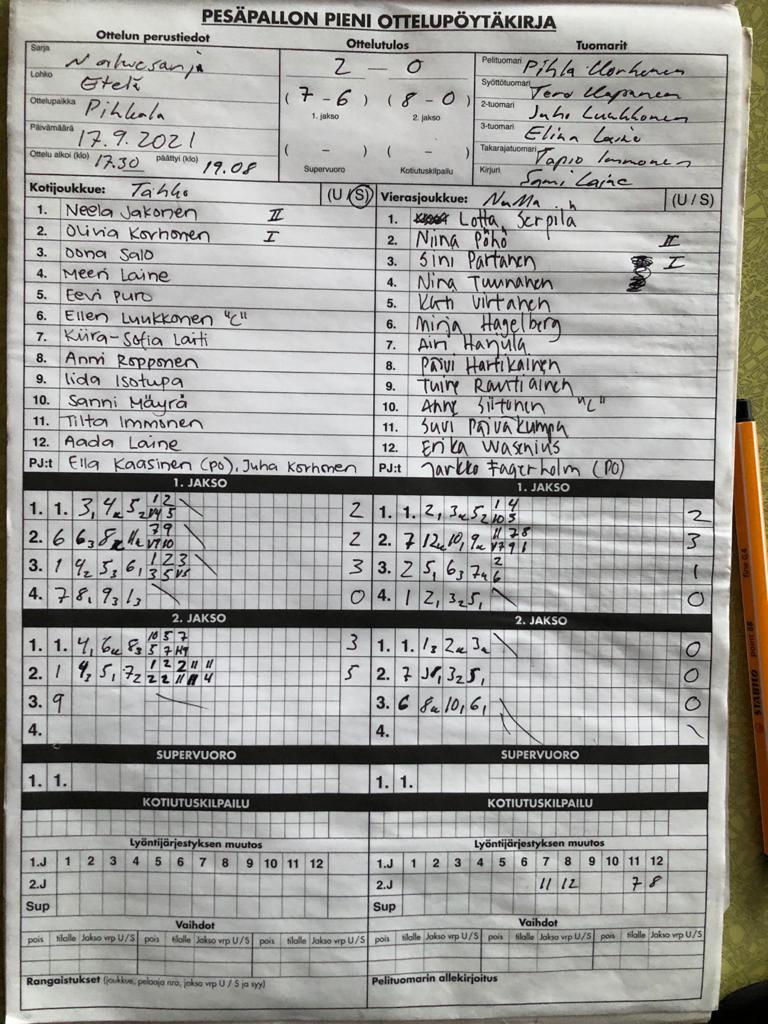 PESÄPALLON PIENI OTTELUPÖYTÄKIRJA
Ottelun perustiedot
Ottelutulos
Tuomarit
Sarja
Lohko Etelä
Ottelupaikka Pihkala
Päivämäärä 17.9.2021
Ottelu alkoi (klo) 17.30 päättyi (klo) 19.08
2 – 0
(7-6) (8-0)
1. jakso 2. jakso
( - ) ( - )
Supervuoro Kotiutuskilpailu
Pelituomari Pihla Korhonen
Syöttötuomari Tero
2-tuomari Juho Luukkonen
3-tuomari Elina Laine
Takarajatuomari Tapio Immonen
Kirjuri Sami Laine
Kotijoukkue: Tahko (U / S)
1. Neela Jakonen II
2. Olivia Korhonen I
3. Oona Salo
4. Meeri Laine
5. Eevi Puro
6. Ellen Luukkonen "C"
7. Kiira-Sofia Laiti
8. Anni Ropponen
9. Iida Isotupa
10. Sanni Mäyrä
11. Tilta Immonen
12. Aada Laine
PJ:t Ella Kaasinen (PO), Juha Korhonen
Vierasjoukkue: NuMa (U / S)
1. Lotta Serpilä
2. Niina Pöhö II
3. Sini Partanen I
4. Nina Tuunanen
5. Kati Virtanen
6. Mirja Hagelberg
7. Airi Harjula
8. Päivi Hartikainen
9. Tuire Rautiainen
10. Anne Siltonen "C"
11. Suvi Päiväkumpu
12. Erika Wasenius
PJ:t Jarkko Fagerholm (PO)
1. JAKSO
1. 1. 2
2. 6 2
3. 1 4₂ 5₃ 6₁ 3
4. 7 8₁ 9₃ 1₃ 0
2. JAKSO
1. 1. 3
2. 1 5
3. 9
4.
SUPERVUORO
1. 1.
KOTIUTUSKILPAILU
1. JAKSO
1. 1. 2
2. 7 3
3. 2 1
4. 1 2₁ 3₂ 5₁ 0
2. JAKSO
1. 1. 0
2. 7 0
3. 6 0
4.
SUPERVUORO
1. 1.
KOTIUTUSKILPAILU
Lyöntijärjestyksen muutos
1.J 1 2 3 4 5 6 7 8 9 10 11 12
2.J
Sup
Lyöntijärjestyksen muutos
1.J 1 2 3 4 5 6 7 8 9 10 11 12
2.J 11 12 7 8
Sup
Vaihdot
pois tilalle Jakso vrp U/S pois tilalle Jakso vrp U/S pois tilalle Jakso vrp U/S
Rangaistukset (joukkue, pelaaja nro, jakso vrp U / S ja syy)
Vaihdot
pois tilalle Jakso vrp U/S pois tilalle Jakso vrp U/S pois tilalle Jakso vrp U/S
Pelituomarin allekirjoitus
STABILO point 88 fine 0,4